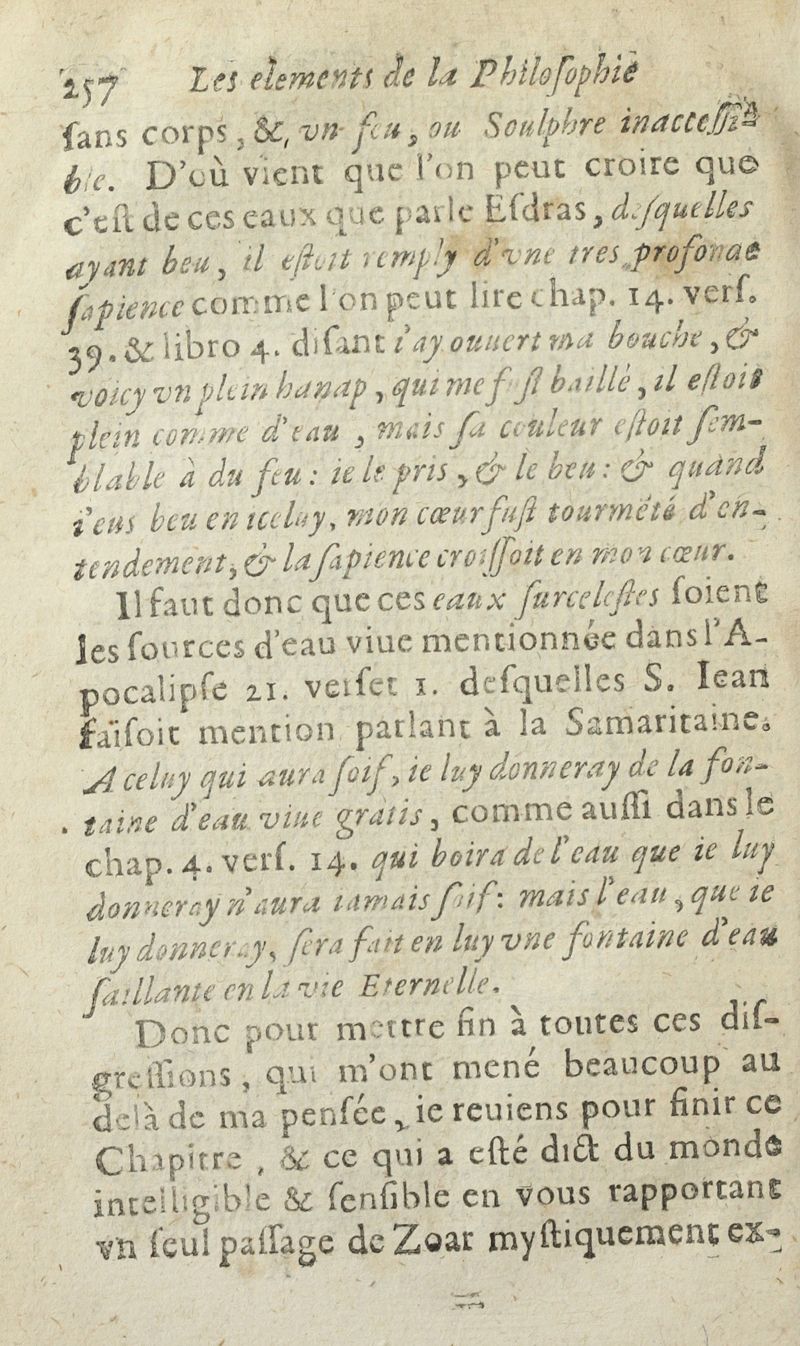 257 Les elements de la Philoſophie
ſans corps, &, vn feu, ou Soulphre inacceſſi-
ble. D'où vient que l'on peut croire que
c'eſt de ces eaux que parle Eſdras, deſquelles
ayant beu, il eſtoit remply d'vne tres profonde
ſapience comme l'on peut lire chap. 14. verſ.
39. & libro 4. diſant i'ay ouuert ma bouche, &
voicy vn plein hanap, qui me fuſt baillé, il eſtoit
plein comme d'eau, mais ſa couleur eſtoit ſem-
blable à du feu: ie le pris, & le beu: & quand
i'eus beu en iceluy, mon cœur fuſt tourmẽté d'en-
tendement, & la ſapience croiſſoit en mon cœur.
Il faut donc que ces eaux ſurceleſtes ſoient
les ſources d'eau viue mentionnée dans l'A-
pocalipſe 21. verſet 1. deſquelles S. Iean
faiſoit mention parlant à la Samaritaine.
A celuy qui aura ſoif, ie luy donneray de la fon-
taine d'eau viue gratis, comme auſſi dans le
chap. 4. verſ. 14. qui boira de l'eau que ie luy
donneray n'aura iamais ſoif: mais l'eau, que ie
luy donneray, ſera fait en luy vne fontaine d'eau
ſaillante en la vie Eternelle.
Donc pour mettre fin à toutes ces diſ-
greſſions, qui m'ont mené beaucoup au
delà de ma penſée, ie reuiens pour finir ce
Chapitre, & ce qui a eſté dict du monde
intelligible & ſenſible en vous rapportant
vn ſeul paſſage de Zoar myſtiquement ex-